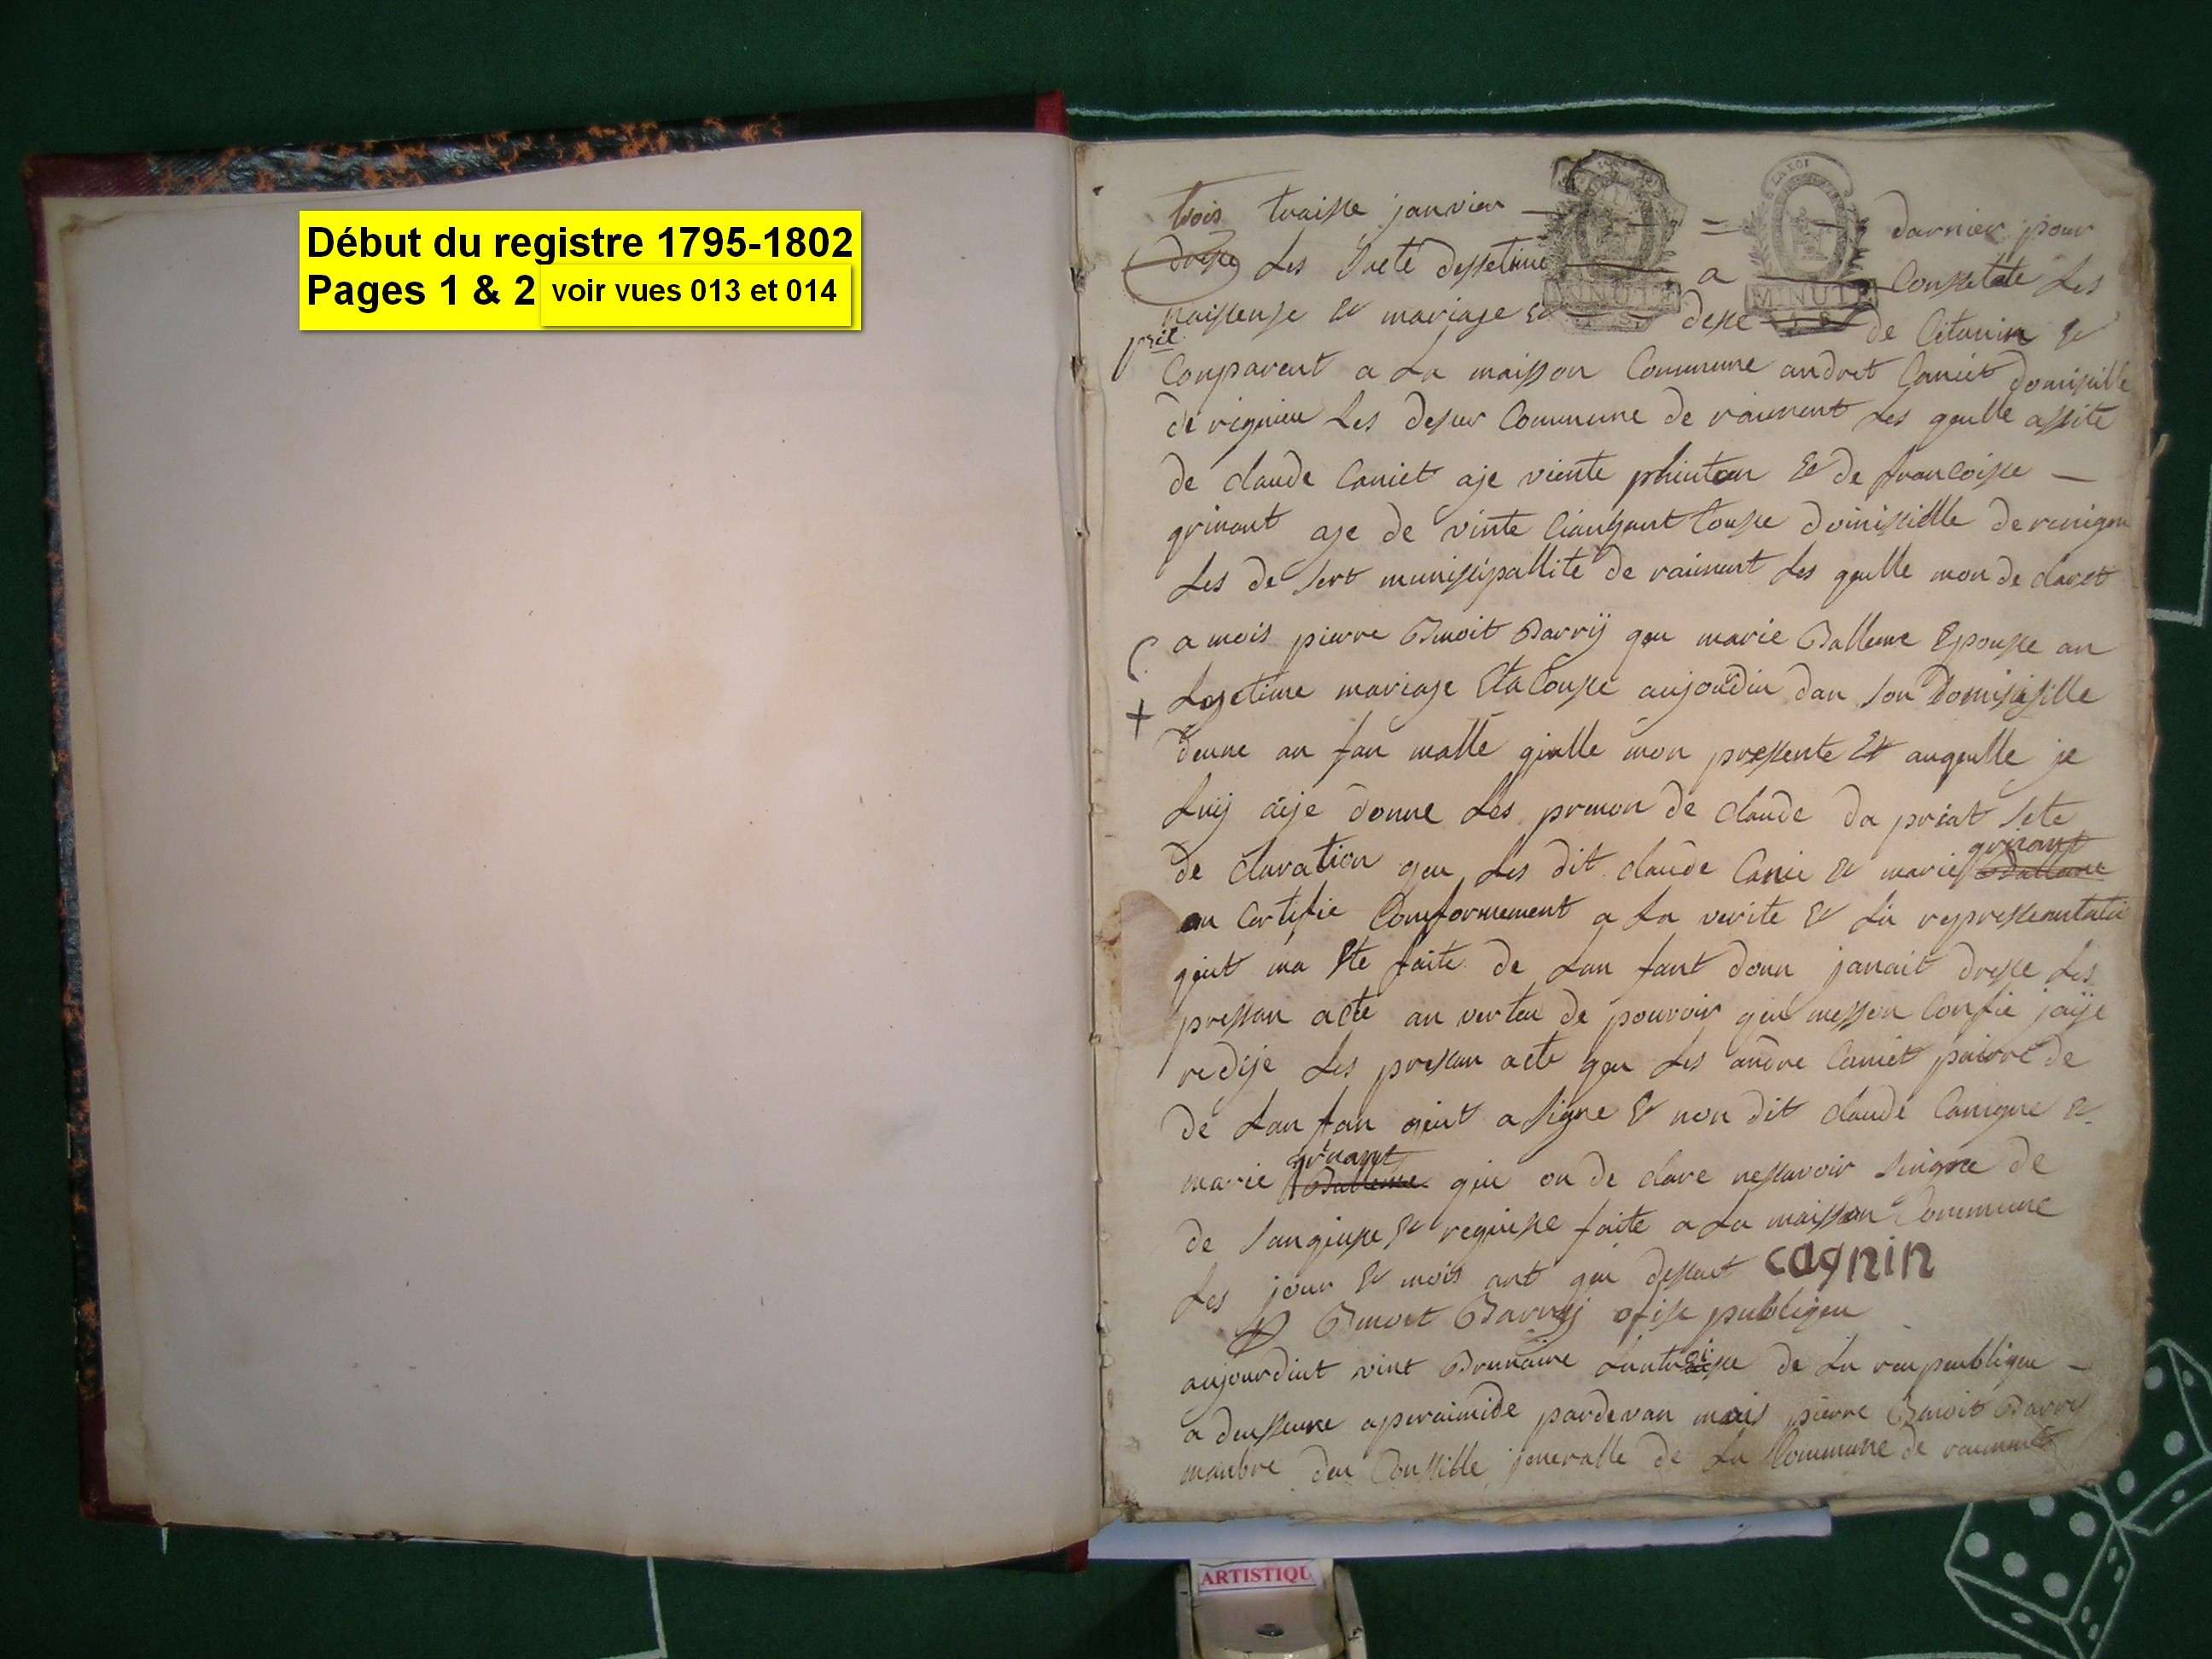 Début du registre 1795-1802
Pages 1 & 2 voir vues 013 et 014
trois traisse janvier darnier pour
Les a Consetate Les
naissense et mariage et desse de Citanin et
Comparent a La maisson Commune andret Caniet domisille
de vignieu Les desur Commune de raiment Les quelle assite
de claude Caniet aje viente et de francoisse
grinant aje de vinte domissille
Les de sert munissipallite de raiment Les quelle mon de claret
a mois pierre Benoit Barrÿ qeu marie Balleme Epousse an
Legetime mariage Eta Cousse aujourdiu dan son domisisille
deune an fan malle quelle mon pressente Et auquelle je
Luij aije donne Les prenon de claude da préat sete
de claration qeu Les dit claude Canie et marie grinant
an Certifie Conformement a La verite et La repressantatio
qiut ma Ete faite de Lan fant donn janait dresse Les
pressan acte an verteu de pouvoir qeui messon Confie jaije
redije Les pressan acte qeu Les andre Caniet pairre de
de Lan fan qiut a signe et non dit claude Canigne et
marie grinant qiu on de clare nessavoir singne de
de sanqiusse et reqiusse faite a La maisson Commune
Les jour et mois ant qeu dessut cagnin
Benoit Barrÿ ofise publiqeu
aujourdiut vint Brumaire de La reupeublique
a deusseure aperaimide pardevan mois pierre Benoit Barry
manbre deu Conssille jeneralle de La Commune de raiment
MINUTE
MINUTE
LA LOI
ARTISTIQU